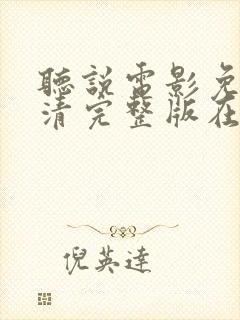 聽說電影免
清完整版在
倪英達